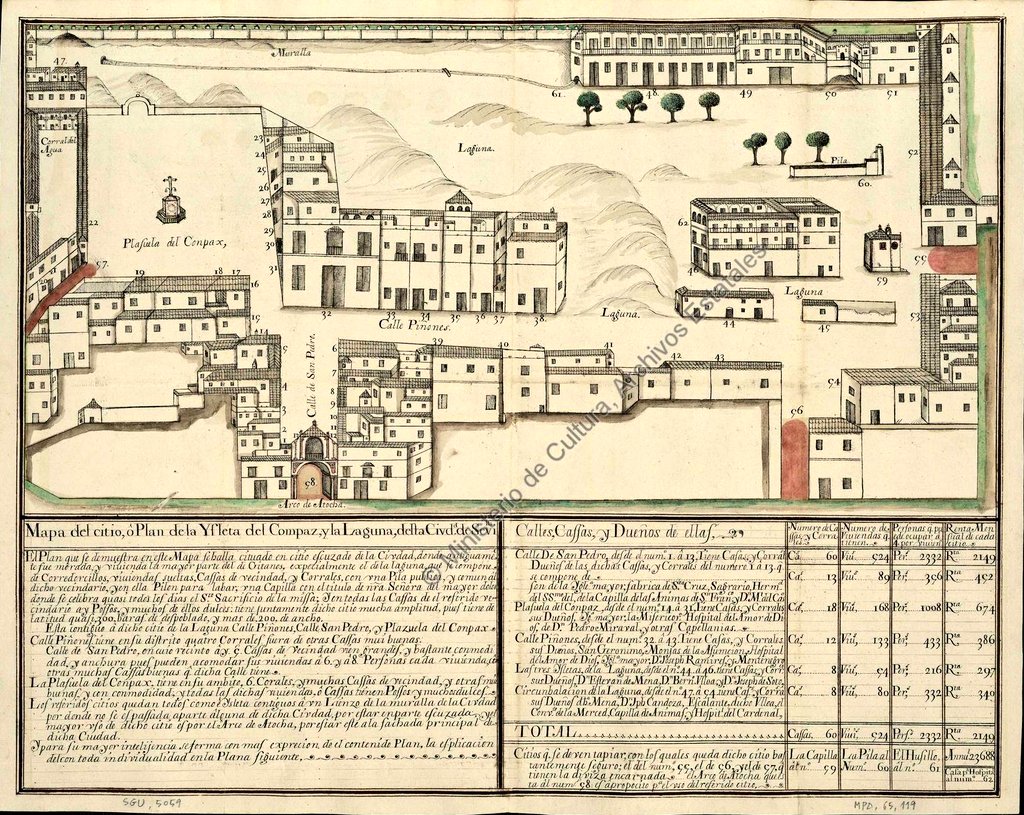 Muralla
47.
Corral del
Agua
61.
48.
49
50
51
23
24
25
26
27
28
29
30
31
Laguna.
Pila
60.
52
22
57.
Plasula del Conpax,
62
46
59
55
19
18
17
16
15
14
32
33
34
35
36
37
38.
Calle Piñones.
Laguna.
44
Laguna
45
53
Calle de San Pedro.
39
40
41
42
43
54
56
5
4
3
2
1
6
7
8
9
10
11
58
Arco de Atocha.
© Ministerio de Cultura, Archivos Estatales
Mapa del citio, ó Plan de la Ysleta del Conpaz, y la Laguna, desta Civd.ᵈ de
El Plan que se demuestra en este Mapa se halla cituado en citio escuzado de la Civdad, donde
te fue morada, y vivienda la mayor parte del de Gitanos, expecialmente el de la laguna, se compone
de Corredercillos, viviendas sueltas, Cassas de vecindad, y Corrales, con vna Pila publica, y comun al
dicho vecindario, y en ella Pilon para labar, vna Capilla con el titulo de nrâ Señora del mayor dolor
donde se celebra quasi todos los dias el S.ᵗᵒ Sacrificio de la missa; Y en todas las Cassas de el referido ve-
cindario ay Possos, y muchos de ellos dulces: tiene juntamente dicho citio mucha amplitud, pues tiene de
latitud quasi 300, baras de despoblado, y mas de 200. de ancho.
Esta contiguo â dicho citio de la Laguna Calle Piñones, Calle San Pedro, y Plazuela del Conpax
Calle Piñones tiene en su distrito quatro Corrales fuera de otras Cassas mui buenas.
Calle de San Pedro, en cuio recinto ay 9. Cassas de Vecindad vien grandes, y bastante comodi-
dad, y anchura pues pueden acomodar sus viviendas â 6. y â 8. Personas cada vivienda, sin
otras muchas Cassas buenas q. dicha Calle tiene.
La Plasula del Conpax, tiene en su ambito, 6. Corrales, y muchas Cassas de vecindad, y otras mui
buenas, y con conmodidad, y todas las dichas viviendas, ô Cassas tienen Possos y muchos dulces.
Los referidos citios quedan todos como Ysleta contiguos â vn Lienzo de la muralla de la Civdad
por donde no se es passada, aparte alguna de dicha Civdad, por estar en parte escuzada, y el
mayor vso de dicho citio es por el Arco de Atocha, por estar este â la fachada principal de
dicha Ciudad.
Y para su mayor intelijencia se forma con mas exprecion, de el contenido Plan, la esplicacion
del con toda individualidad en la Plana siguiente.
Calles, Cassas, y Dueños de ellas.
Numero de Ca-
sas, y Corra-
les.
Numero de
Viviendas q.
tienen.
Personas q. pu-
eden ocupar â
4 por viviend.
Renta Men-
sual de cada
citio.
Calle De San Pedro, desde el num.º 1. â 13, Tiene Casas, y Corral.ˢ
Ca. 60 Viu. 524 Per. 2332 R.ᵗᵃ 2149
Dueños de las dichas Cassas, y Corrales del numero 1. â 13. q.
se compone de
Ca. 13 Viu. 89 Per. 356 R.ᵗᵃ 452
son de la S.ᵗᵃ mayor, fabrica de S.ᵗᵃ Cruz, Sagrario, Herm.ᵈ
del SS.ᵐᵒ del, de la Capilla de las Animas de S.ᵗᵃ
Plasula del Conpaz, desde el num. 14. â 31. Tiene Cassas, y Corrales
Ca. 18 Viu. 168 Per. 1008 R.ᵗᵃ 674
sus Dueños, S.ᵗᵃ Ygl.ᵃ mayor, la Misericor.ᵃ Hospital del Amor de Di-
os, de D.ⁿ Pedro Miraval, y otras Capellanias.
Calle Piñones, desde el num. 32. â 43. Tiene Cassas, y Corrales
Ca. 12 Viu. 133 Per. 433 R.ᵗᵃ 386
sus Dueños, San Geronimo, Monjas de la Asumcion, Hospital
del Amor de Dios, S.ᵗᵃ Ygl.ᵃ mayor, D.ⁿ Joseph Ramires, y
Las tres Ysletas, de la Laguna, desde el n.º 44. â 46. tiene Cassas, y Cor.ˢ
Ca. 8 Viu. 54 Per. 216 R.ᵗᵃ 297
sus Dueños, D.ⁿ Estevan de Mena, D.ⁿ Bern.ᵈᵒ Ulloa, y D.ⁿ Joseph de Soto.
Circunbalacion de la Laguna, desde el n.º 47. â 54. tiene Cas.ˢ y Corra.ˢ
Ca. 8 Viu. 80 Per. 332 R.ᵗᵃ 340
sus Dueños d.ʰᵒ Mena, D.ⁿ Jph Candoza, Escalante, dicho Ulloa, el
Conv.ᵗᵒ de la Merced, Capilla de Animas, y Hospit.ˡ del Cardenal,
TOTAL.
Cassas. 60 Viui. 524 Per. 2332 R.ᵗᵃ 2149
Citios q. se deven tapiar, con los quales queda dicho citio bas-
tantemente seguro; el del num.º 55, el de 56, y el de 57. q.
tienen la diviza encarnada. el Arco de Atocha que es-
ta al num.º 58. es aproposito p.ᵃ el vso del referido citio.
La Capilla
al n.º 59
La Pila al
Num.º 60
El Husillo,
al n.º 61
Annu.ˡ 23688
Casa p.ᵃ Hospita.ˡ
al num.º 62
SGU, 5059
MPD, 65, 119